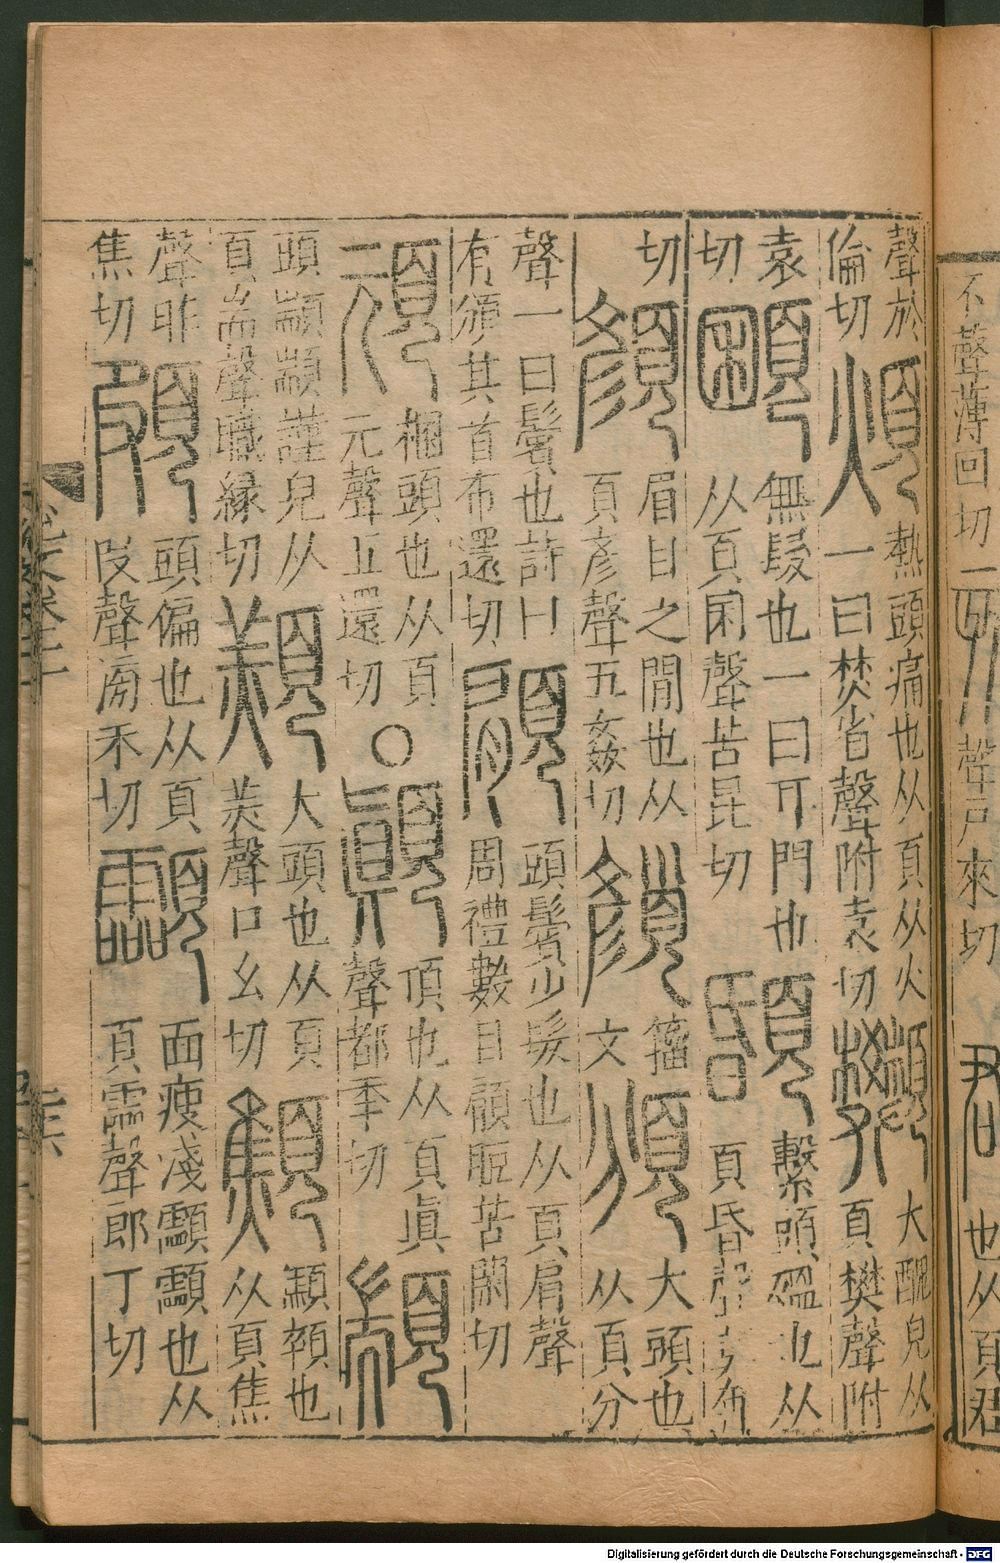 不聲薄回切一 聲戶來切 也从頁君
聲於倫切 煩 熱頭痛也从頁从火一曰焚省聲附袁切 大醜皃从頁樊聲附
袁切 無髮也一曰耳門也从頁囷聲苦昆切 繫頭殟也从頁昏聲
切 顏 眉目之閒也从頁彥聲五姦切 籀文 頒 大頭也从頁分
聲一曰鬢也詩曰有頒其首布還切 顅 頭鬢少髮也从頁肩聲周禮數目顅脰苦閑切
頑 棞頭也从頁元聲五還切 ○ 顚 頂也从頁眞聲都年切 顓
頭顓顓謹皃从頁耑聲職緣切 大頭也从頁羔聲口幺切 顦 顦顇也从頁焦
聲昨焦切 頗 頭偏也从頁皮聲滂禾切 顬 面瘦淺顬顬也从頁霝聲郎丁切
Digitalisierung gefördert durch die Deutsche Forschungsgemeinschaft - DFG